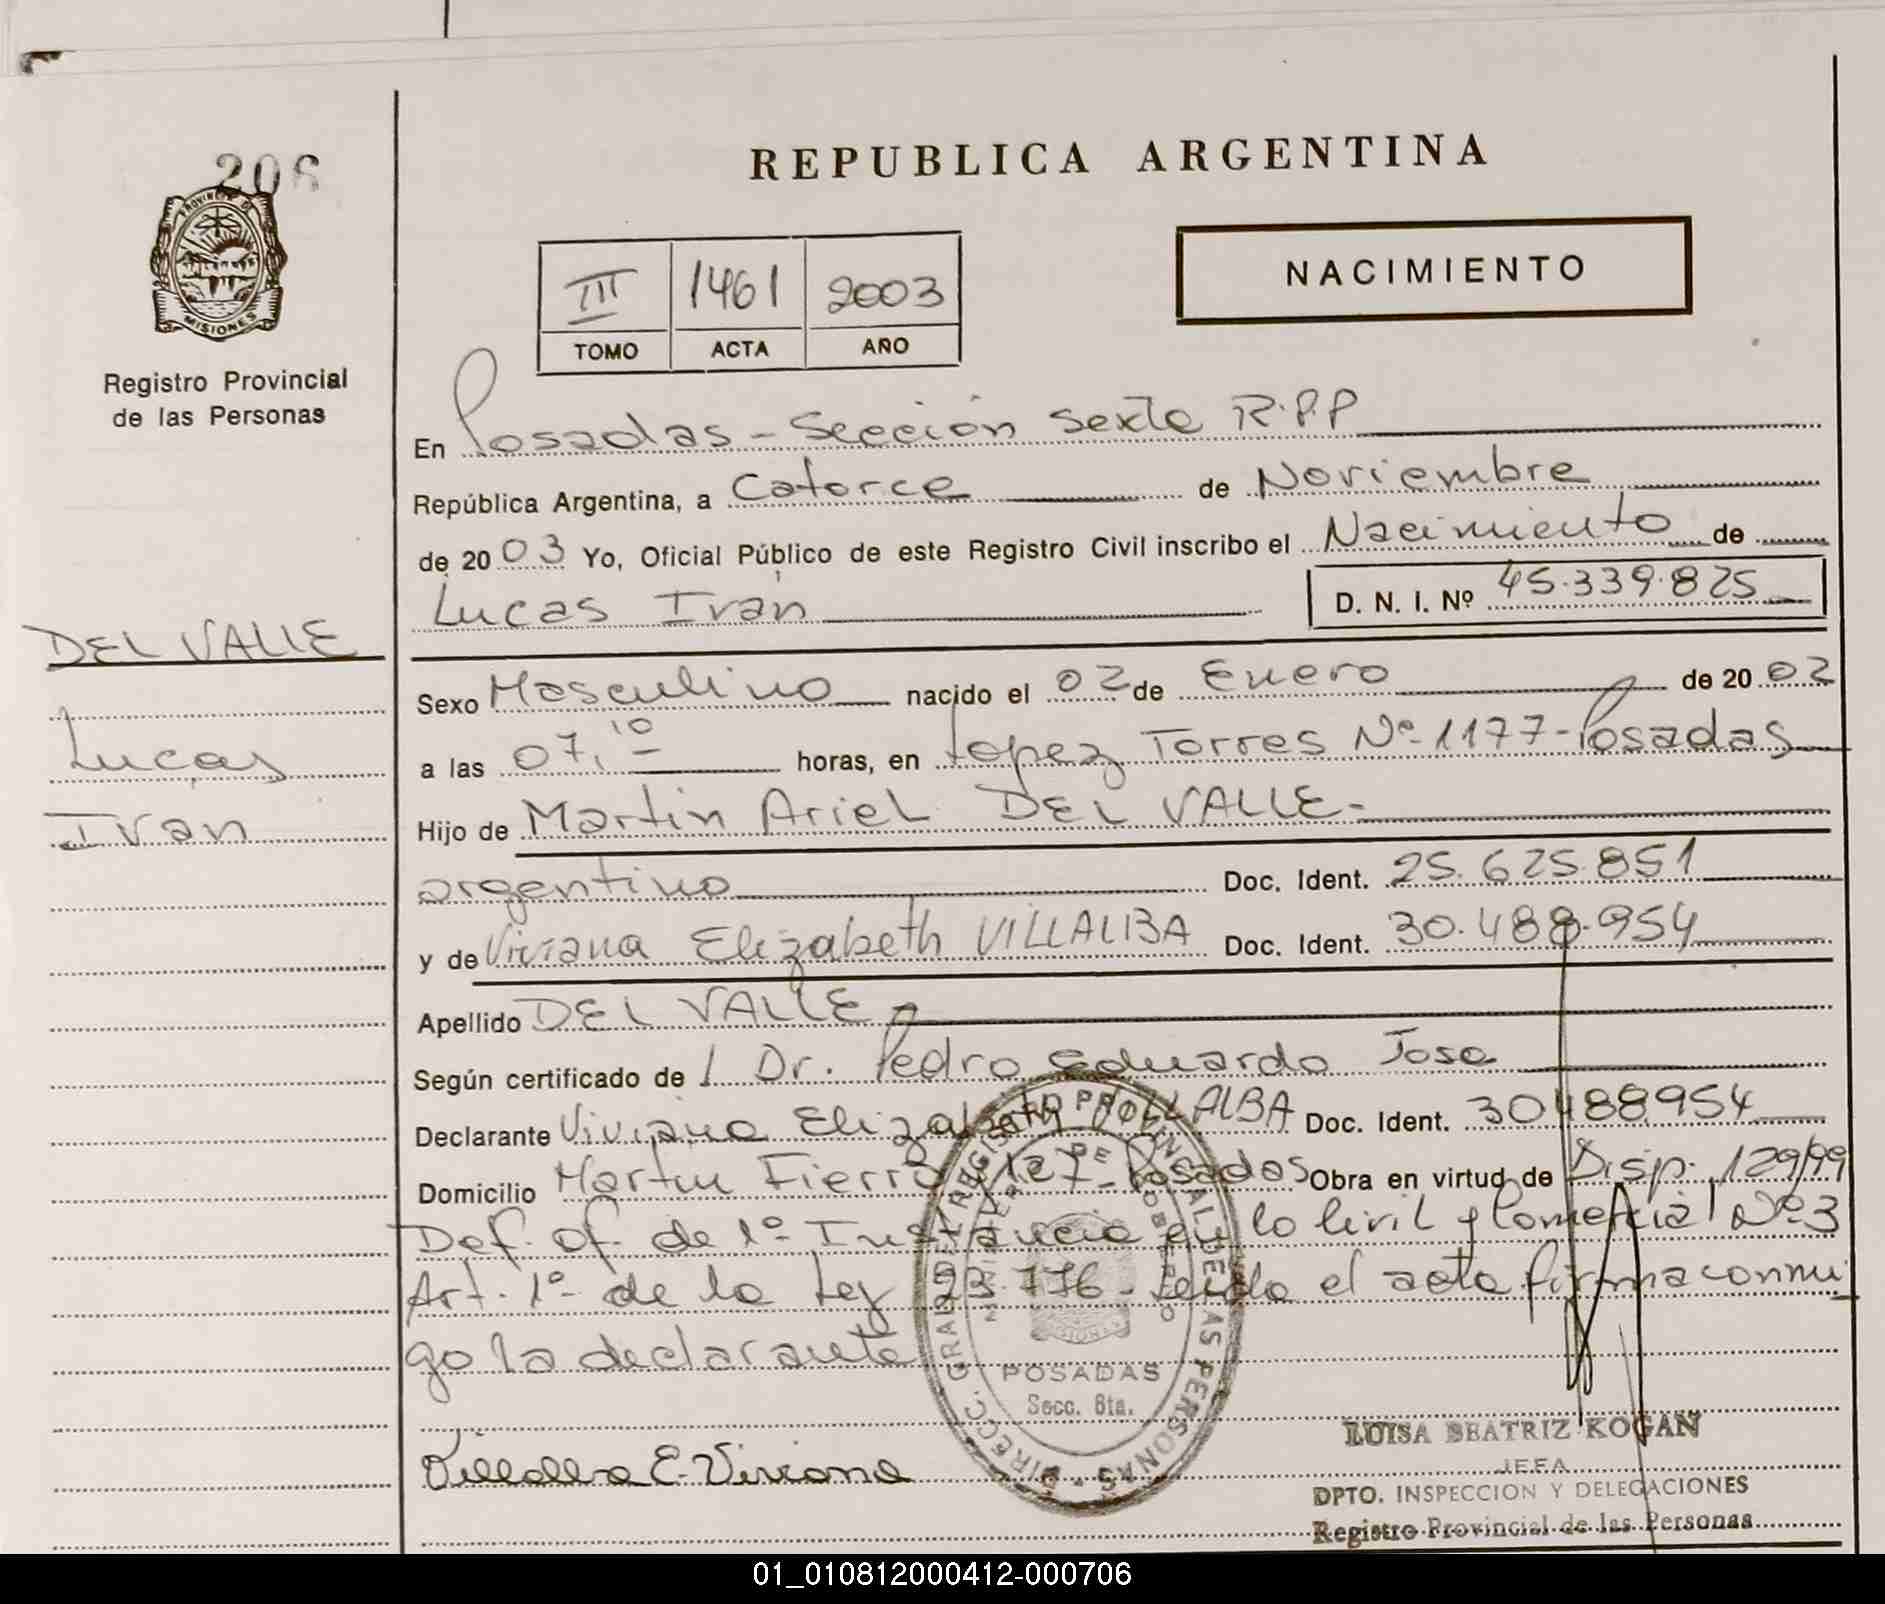 206
PROVINCIA DE
MISIONES
Registro Provincial
de las Personas
REPUBLICA ARGENTINA
NACIMIENTO
III 1461 2003
TOMO ACTA AÑO
En Posadas - Sección Sexta R.P.P
República Argentina, a Catorce de Noviembre
de 2003 Yo, Oficial Público de este Registro Civil inscribo el Nacimiento de
Lucas Ivan D. N. I. Nº 45.339.825
DEL VALLE
Lucas
Ivan
Sexo Masculino nacido el 02 de Enero de 2002
a las 07,10 horas, en Lopez Torres Nº 1177 - Posadas
Hijo de Martin Ariel DEL VALLE -
argentino Doc. Ident. 25.625.851
y de Viviana Elizabeth VILLALBA Doc. Ident. 30.488.954
Apellido DEL VALLE -
Según certificado de / Dr. Pedro Eduardo Jose
Declarante Viviana Elizabeth VILLALBA Doc. Ident. 30488954
Domicilio Martin Fierro 127 - Posadas Obra en virtud de Disp. 129/99
Def. of. de 1º Instancia en lo Civil y Comercial Nº 3
Art. 1º de la Ley 23.776 - Leida el acta firma conmi
go la declarante
Villalba E. Viviana
DIRECC. GRAL DEL REGISTRO PROVINCIAL DE LAS PERSONAS
POSADAS
Secc. 6ta.
LUISA BEATRIZ KOGAN
JEFA
DPTO. INSPECCION Y DELEGACIONES
Registro Provincial de las Personas
01_010812000412-000706